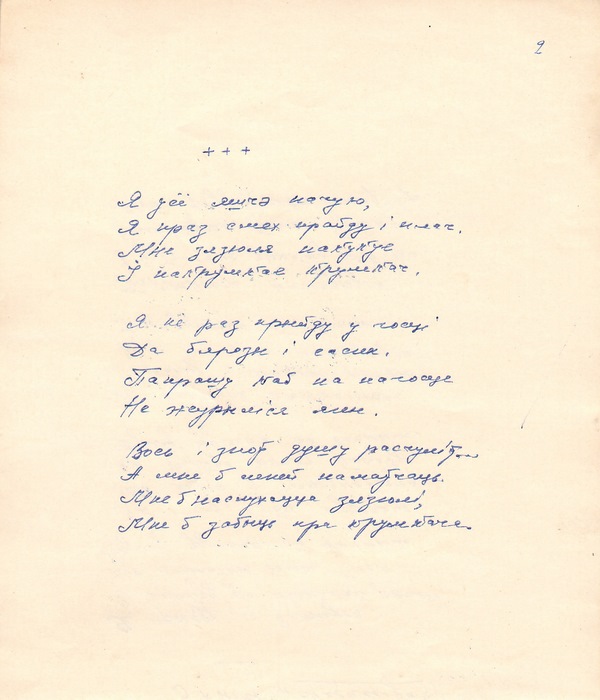 2
+ + +
Я усё яшчэ пачую,
Я праз смех прайду і плач.
Мне зязюля накукуе
І накрумкае крумкач.
Я не раз прыйду у госці
Да бярозк і сасен.
Папрашу каб на пагосце
Не журыліся
Вось і зноў душу расчуліў...
А мне б лепей памаўчаць.
Мне б наслухацца зязюлі,
Мне б забыць пра крумкача.